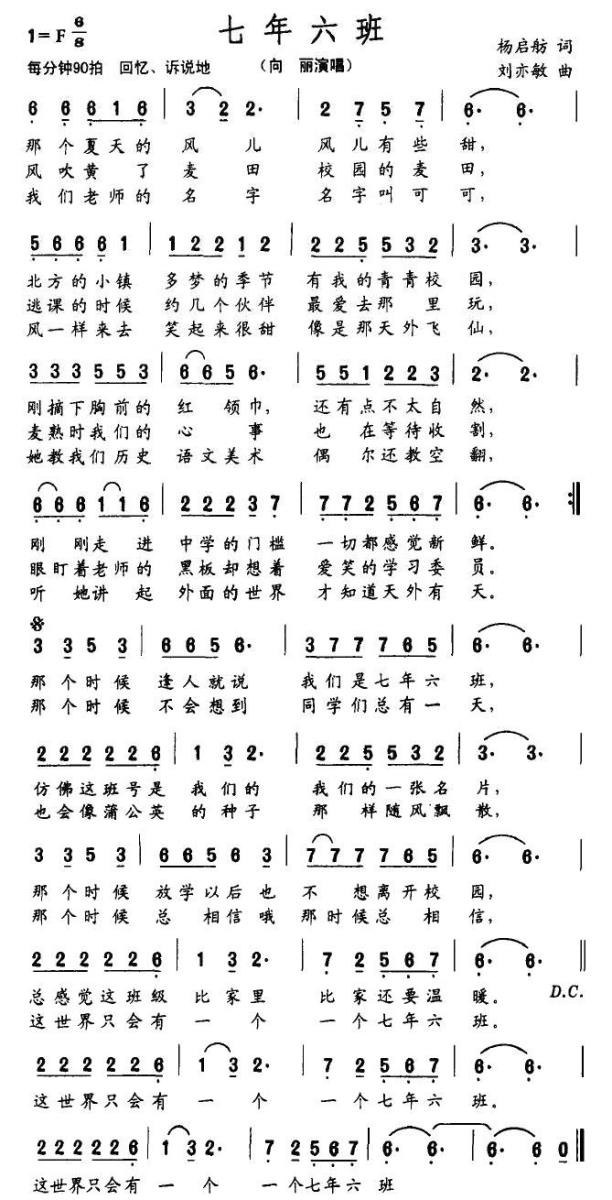 七年六班
1=F 6/8
杨启舫 词
每分钟90拍 回忆、诉说地
（向 丽演唱）
刘亦敏 曲
6 6 6 1 6 | 3 2 2· | 2 7 5 7 | 6· 6· |
那个夏天的 风儿 风儿有些 甜，
风吹黄了 麦田 校园的麦田，
我们老师的 名字 名字叫可可，
5 6 6 6 1 | 1 2 2 1 2 | 2 2 5 5 3 2 | 3· 3· |
北方的小镇 多梦的季节 有我的青青校 园，
逃课的时候 约几个伙伴 最爱去那 里 玩，
风一样来去 笑起来很甜 像是那天外飞 仙，
3 3 3 5 5 3 | 6 6 5 6· | 5 5 1 2 2 3 | 2· 2· |
刚摘下胸前的 红 领巾， 还有点不太自 然，
麦熟时我们的 心 事 也 在等待收 割，
她教我们历史 语文美术 偶 尔还教空 翻，
6 6 6 1 1 6 | 2 2 2 3 7 | 7 7 2 5 6 7 | 6· 6· :‖
刚 刚走 进 中学的门槛 一切都感觉新 鲜。
眼盯着老师的 黑板却想着 爱笑的学习委 员。
听 她讲 起 外面的世界 才知道天外有 天。
3 3 5 3 | 6 6 5 6· | 3 7 7 7 6 5 | 6· 6· |
那个时候 逢人就说 我们是七年六 班，
那个时候 不会想到 同学们总有一 天，
2 2 2 2 2 6 | 1 3 2· | 2 2 5 5 3 2 | 3· 3· |
仿佛这班号是 我们的 我们的一张名 片，
也会像蒲公英 的种子 那 样随风飘 散，
3 3 5 3 | 6 6 5 6 3 | 7 7 7 7 6 5 | 6· 6· |
那个时候 放学以后也 不 想离开校 园，
那个时候 总 相信哦 那时候总 相 信，
2 2 2 2 2 6 | 1 3 2· | 7 2 5 6 7 | 6· 6· ‖
总感觉这班级 比家里 比家还要温 暖。 D.C.
这世界只会有 一 个 一个七年六 班。
2 2 2 2 2 6 | 1 3 2· | 7 2 5 6 7 | 6· 6· |
这世界只会有 一 个 一个七年六 班。
2 2 2 2 2 6 | 1 3 2· | 7 2 5 6 7 | 6· 6· | 6· 6 0 ‖
这世界只会有 一 个 一个七年六 班